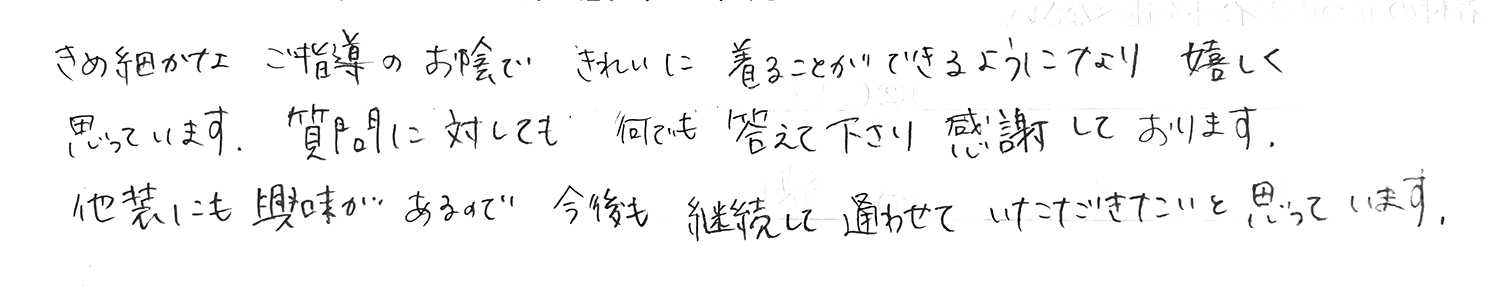 きめ細かな ご指導の お陰で きれいに 着ることができるようになり 嬉しく
思っています. 質問に対しても 何でも 答えて下さり 感謝しております.
他装にも 興味が あるので 今後も 継続して 通わせて いただきたいと思っています.